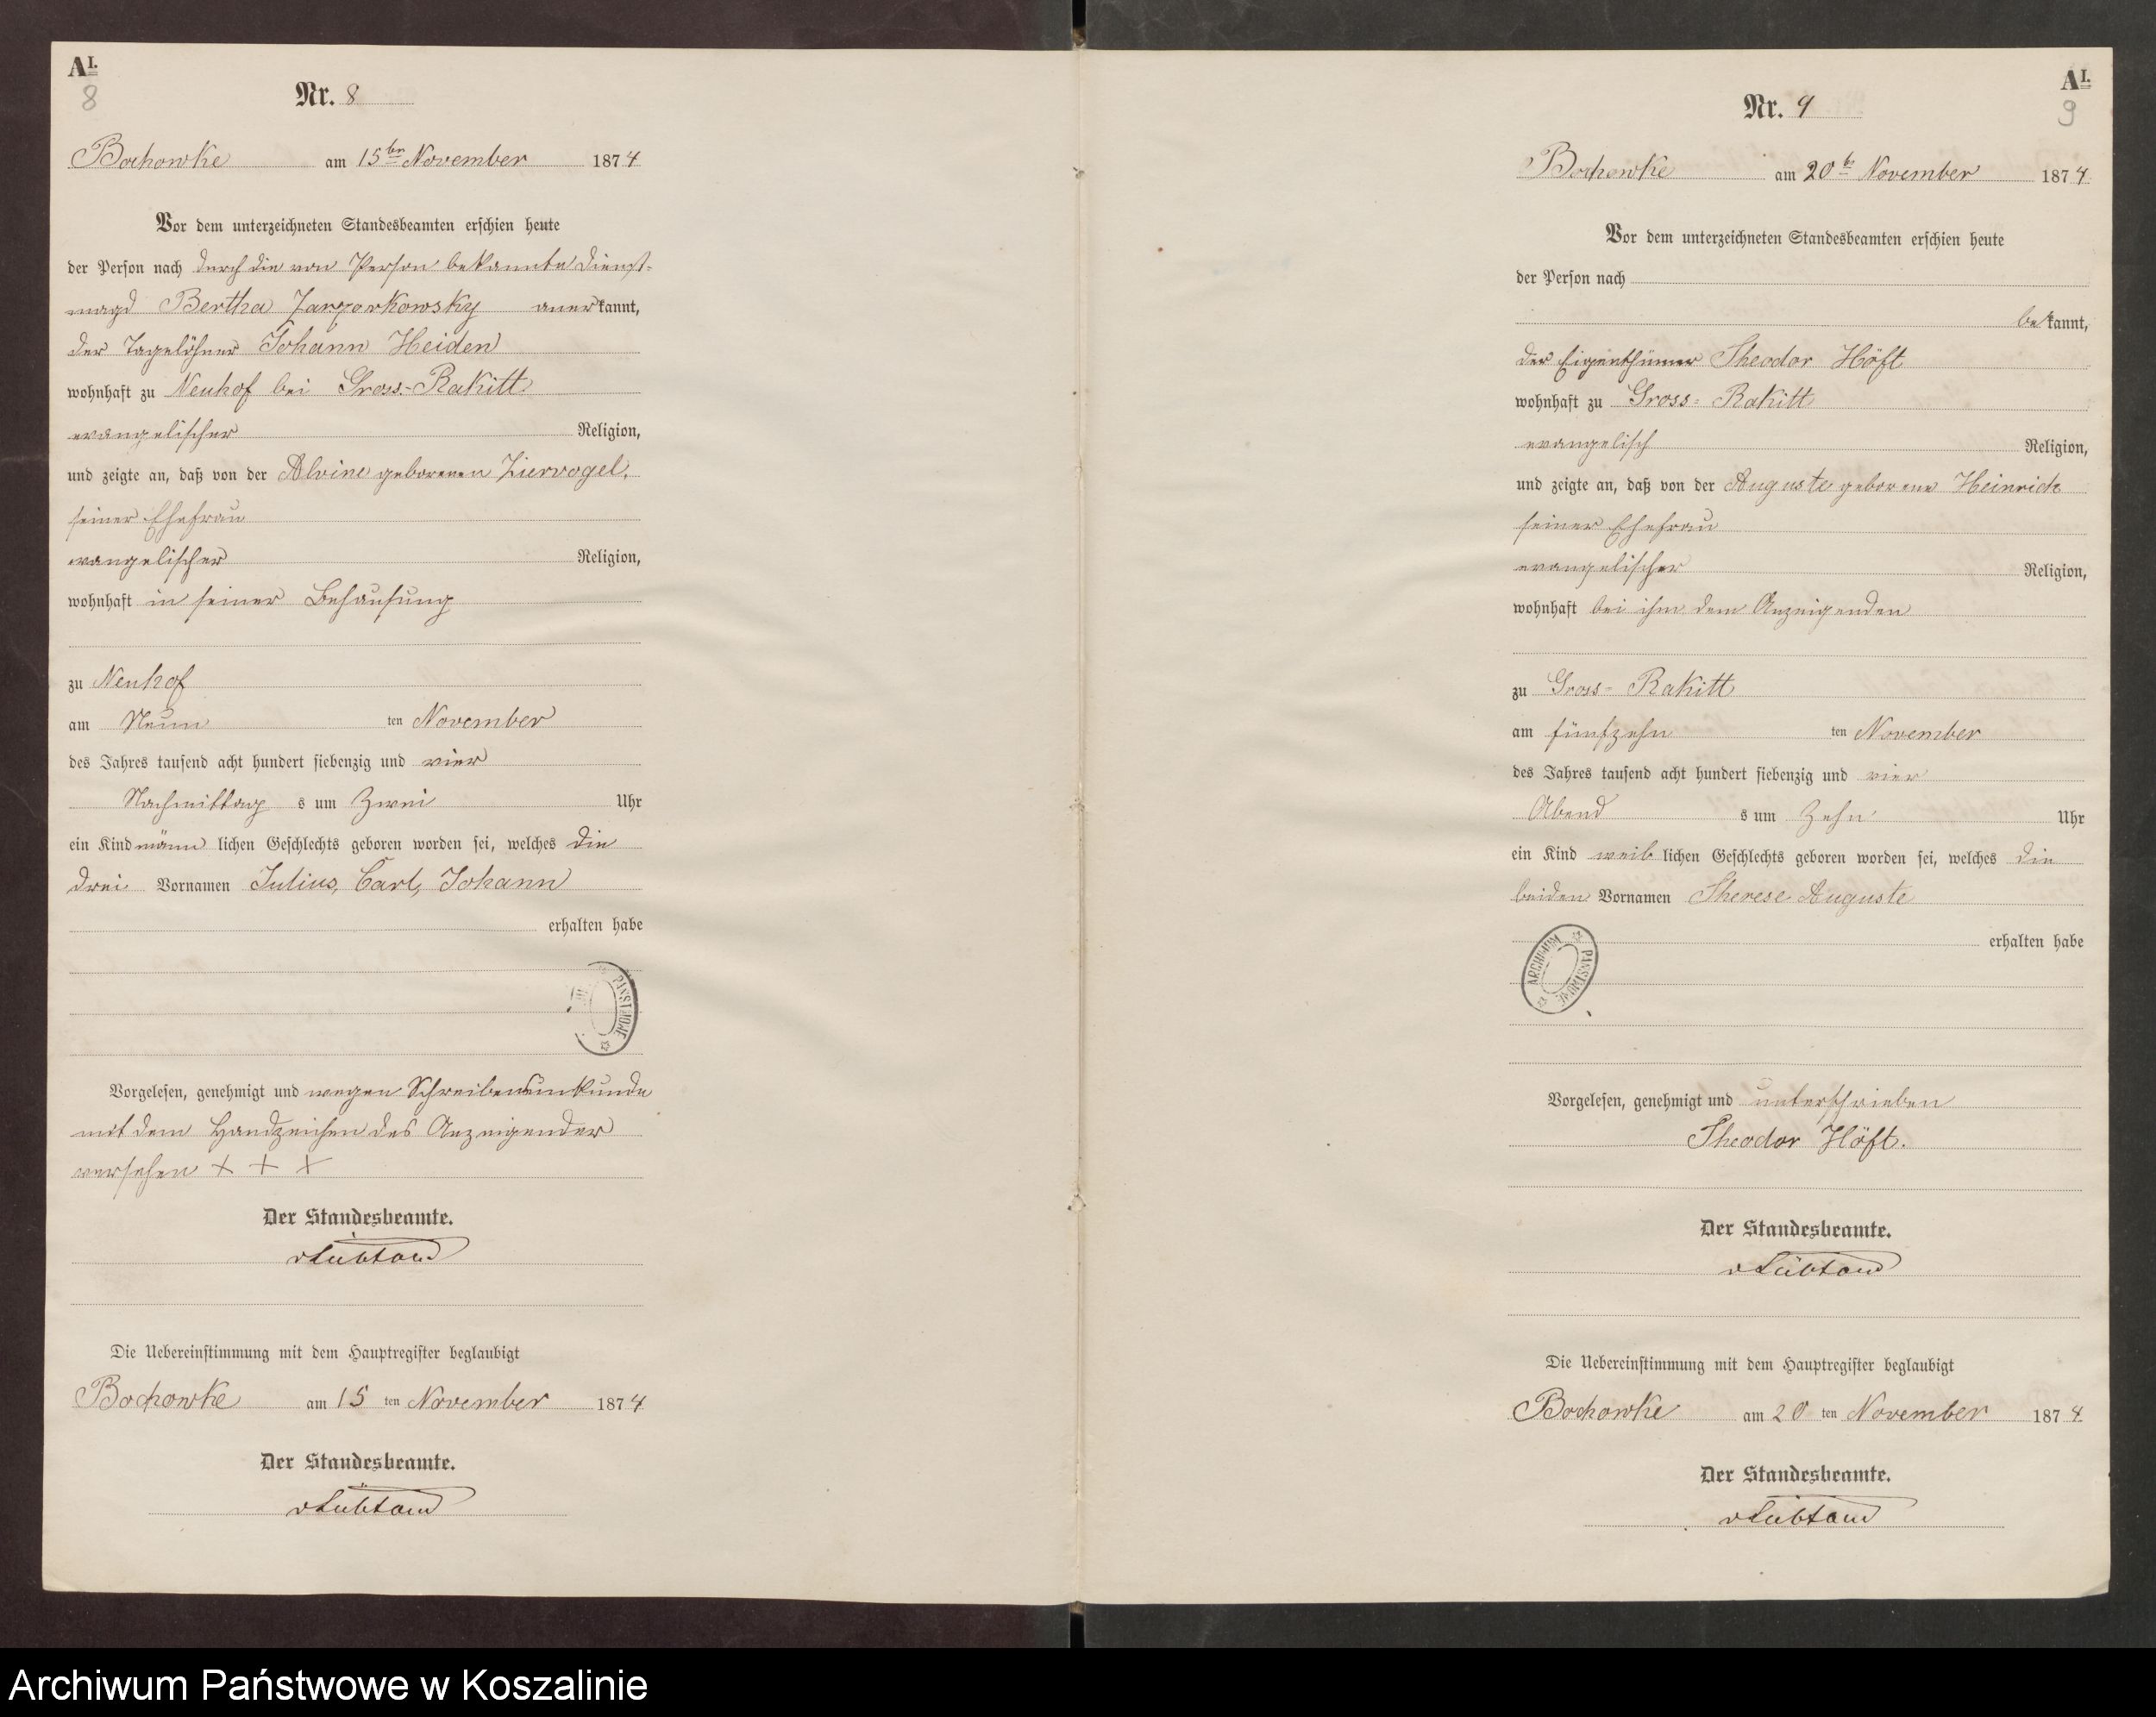 AI.
8
Nr. 8
Bochowke am 15ten November 1874
Vor dem unterzeichneten Standesbeamten erschien heute
der Person nach durch die von Person bekannte Dienst-
magd Bertha anerkannt,
der Tagelöhner Johann Heiden
wohnhaft zu Neuhof bei Gross-Rakitt
evangelischer Religion,
und zeigte an, daß von der Alvine geborenen Ziervogel,
seiner Ehefrau
evangelischer Religion,
wohnhaft in seiner Behausung
zu Neuhof
am Neun ten November
des Jahres tausend acht hundert siebenzig und vier
Nachmittag s um Zwei Uhr
ein Kind männ lichen Geschlechts geboren worden sei, welches die
drei Vornamen Julius, Carl, Johann
erhalten habe
PAŃSTWOWE
Vorgelesen, genehmigt und wegen Schreibensunkunde
mit dem Handzeichen des Anzeigender
versehen + + +
Der Standesbeamte.
Die Uebereinstimmung mit dem Hauptregister beglaubigt
Bochowke am 15 ten November 1874
Der Standesbeamte.
AI.
9
Nr. 9
Bochowke am 20te November 1874
Vor dem unterzeichneten Standesbeamten erschien heute
der Person nach
bekannt,
der Eigenthümer Theodor Höft
wohnhaft zu Gross-Rakitt
evangelisch Religion,
und zeigte an, daß von der Auguste geborene Heinrich
seiner Ehefrau
evangelischer Religion,
wohnhaft bei ihm dem Anzeigenden
zu Gross-Rakitt
am fünfzehn ten November
des Jahres tausend acht hundert siebenzig und vier
Abend s um Zehn Uhr
ein Kind weib lichen Geschlechts geboren worden sei, welches die
beiden Vornamen Therese Auguste
erhalten habe
ARCHIWUM PAŃSTWOWE
Vorgelesen, genehmigt und unterschrieben
Theodor Höft.
Der Standesbeamte.
Die Uebereinstimmung mit dem Hauptregister beglaubigt
Bochowke am 20 ten November 1874
Der Standesbeamte.
Archiwum Państwowe w Koszalinie